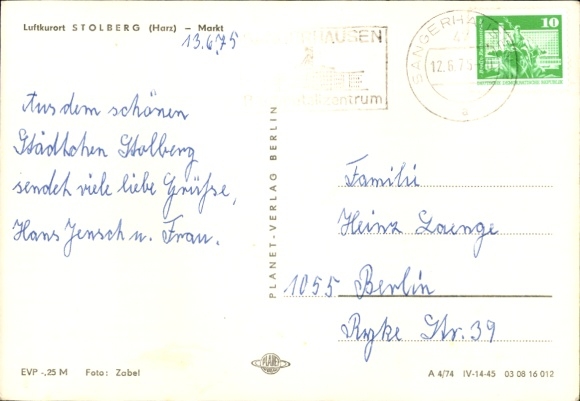 Luftkurort STOLBERG (Harz) – Markt
13.6.75
Aus dem schönen
Städtchen Stolberg
sendet viele liebe Grüße,
Hans Jensch u. Frau.
HAUSEN
zentrum
SANGERHA
12.6.75
10
DEUTSCHE DEMOKRATISCHE REPUBLIK
PLANET-VERLAG BERLIN
Familie
Heinz Laenge
1055 Berlin
Ryke Str. 39
EVP -,25 M Foto: Zabel
PLANET
A 4/74 IV-14-45 03 08 16 012